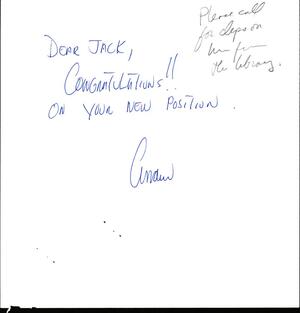 Please call
for clips on
him from
the library.
DEAR JACK,
CONGRATULATIONS!!
ON YOUR NEW POSITION.